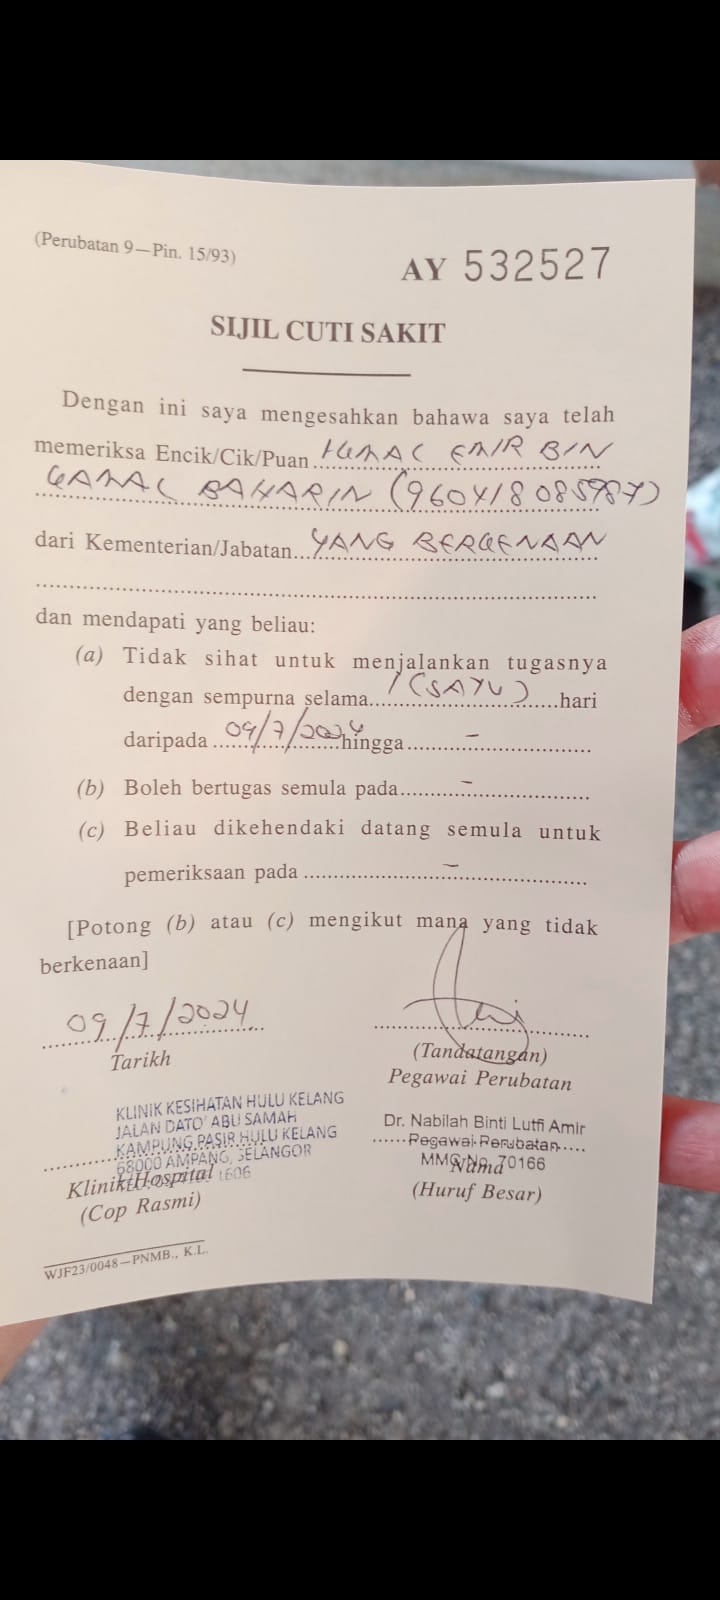 (Perubatan 9—Pin. 15/93)
AY 532527
SIJIL CUTI SAKIT
Dengan ini saya mengesahkan bahawa saya telah
memeriksa Encik/Cik/Puan EMIR BIN
BAHARIN
dari Kementerian/Jabatan YANG BERKENAAN
dan mendapati yang beliau:
(a) Tidak sihat untuk menjalankan tugasnya
dengan sempurna selama 1 (SATU) hari
daripada 09/7/2024 hingga -
(b) Boleh bertugas semula pada -
(c) Beliau dikehendaki datang semula untuk
pemeriksaan pada -
[Potong (b) atau (c) mengikut mana yang tidak
berkenaan]
09/7/2024
Tarikh
(Tandatangan)
Pegawai Perubatan
KLINIK KESIHATAN HULU KELANG
JALAN DATO' ABU SAMAH
KAMPUNG PASIR HULU KELANG
68000 AMPANG, SELANGOR
Klinik/Hospital
(Cop Rasmi)
Dr. Nabilah Binti Lutfi Amir
Pegawai Perubatan
MMC No. 70166
Nama
(Huruf Besar)
WJF23/0048—PNMB., K.L.